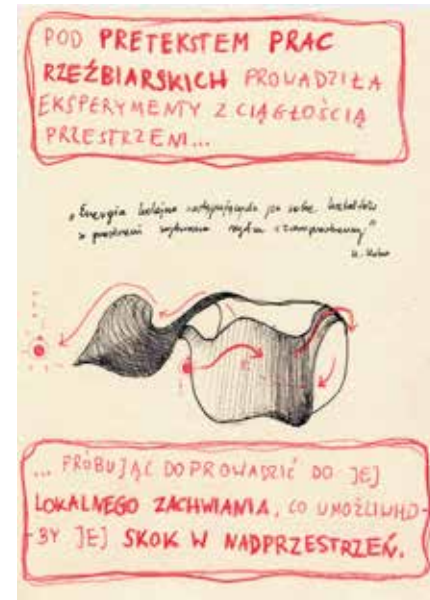 POD PRETEKSTEM PRAC
RZEŹBIARSKICH PROWADZIŁA
EKSPERYMENTY Z CIĄGŁOŚCIĄ
PRZESTRZENI...
„Energia kolejno następujących po sobie kształtów
w przestrzeni wytwarza rytm czasoprzestrzenny”
K. Kobro
... PRÓBUJĄC DOPROWADZIĆ DO JEJ
LOKALNEGO ZACHWIANIA, CO UMOŻLIWIŁO-
-BY JEJ SKOK W NADPRZESTRZEŃ.